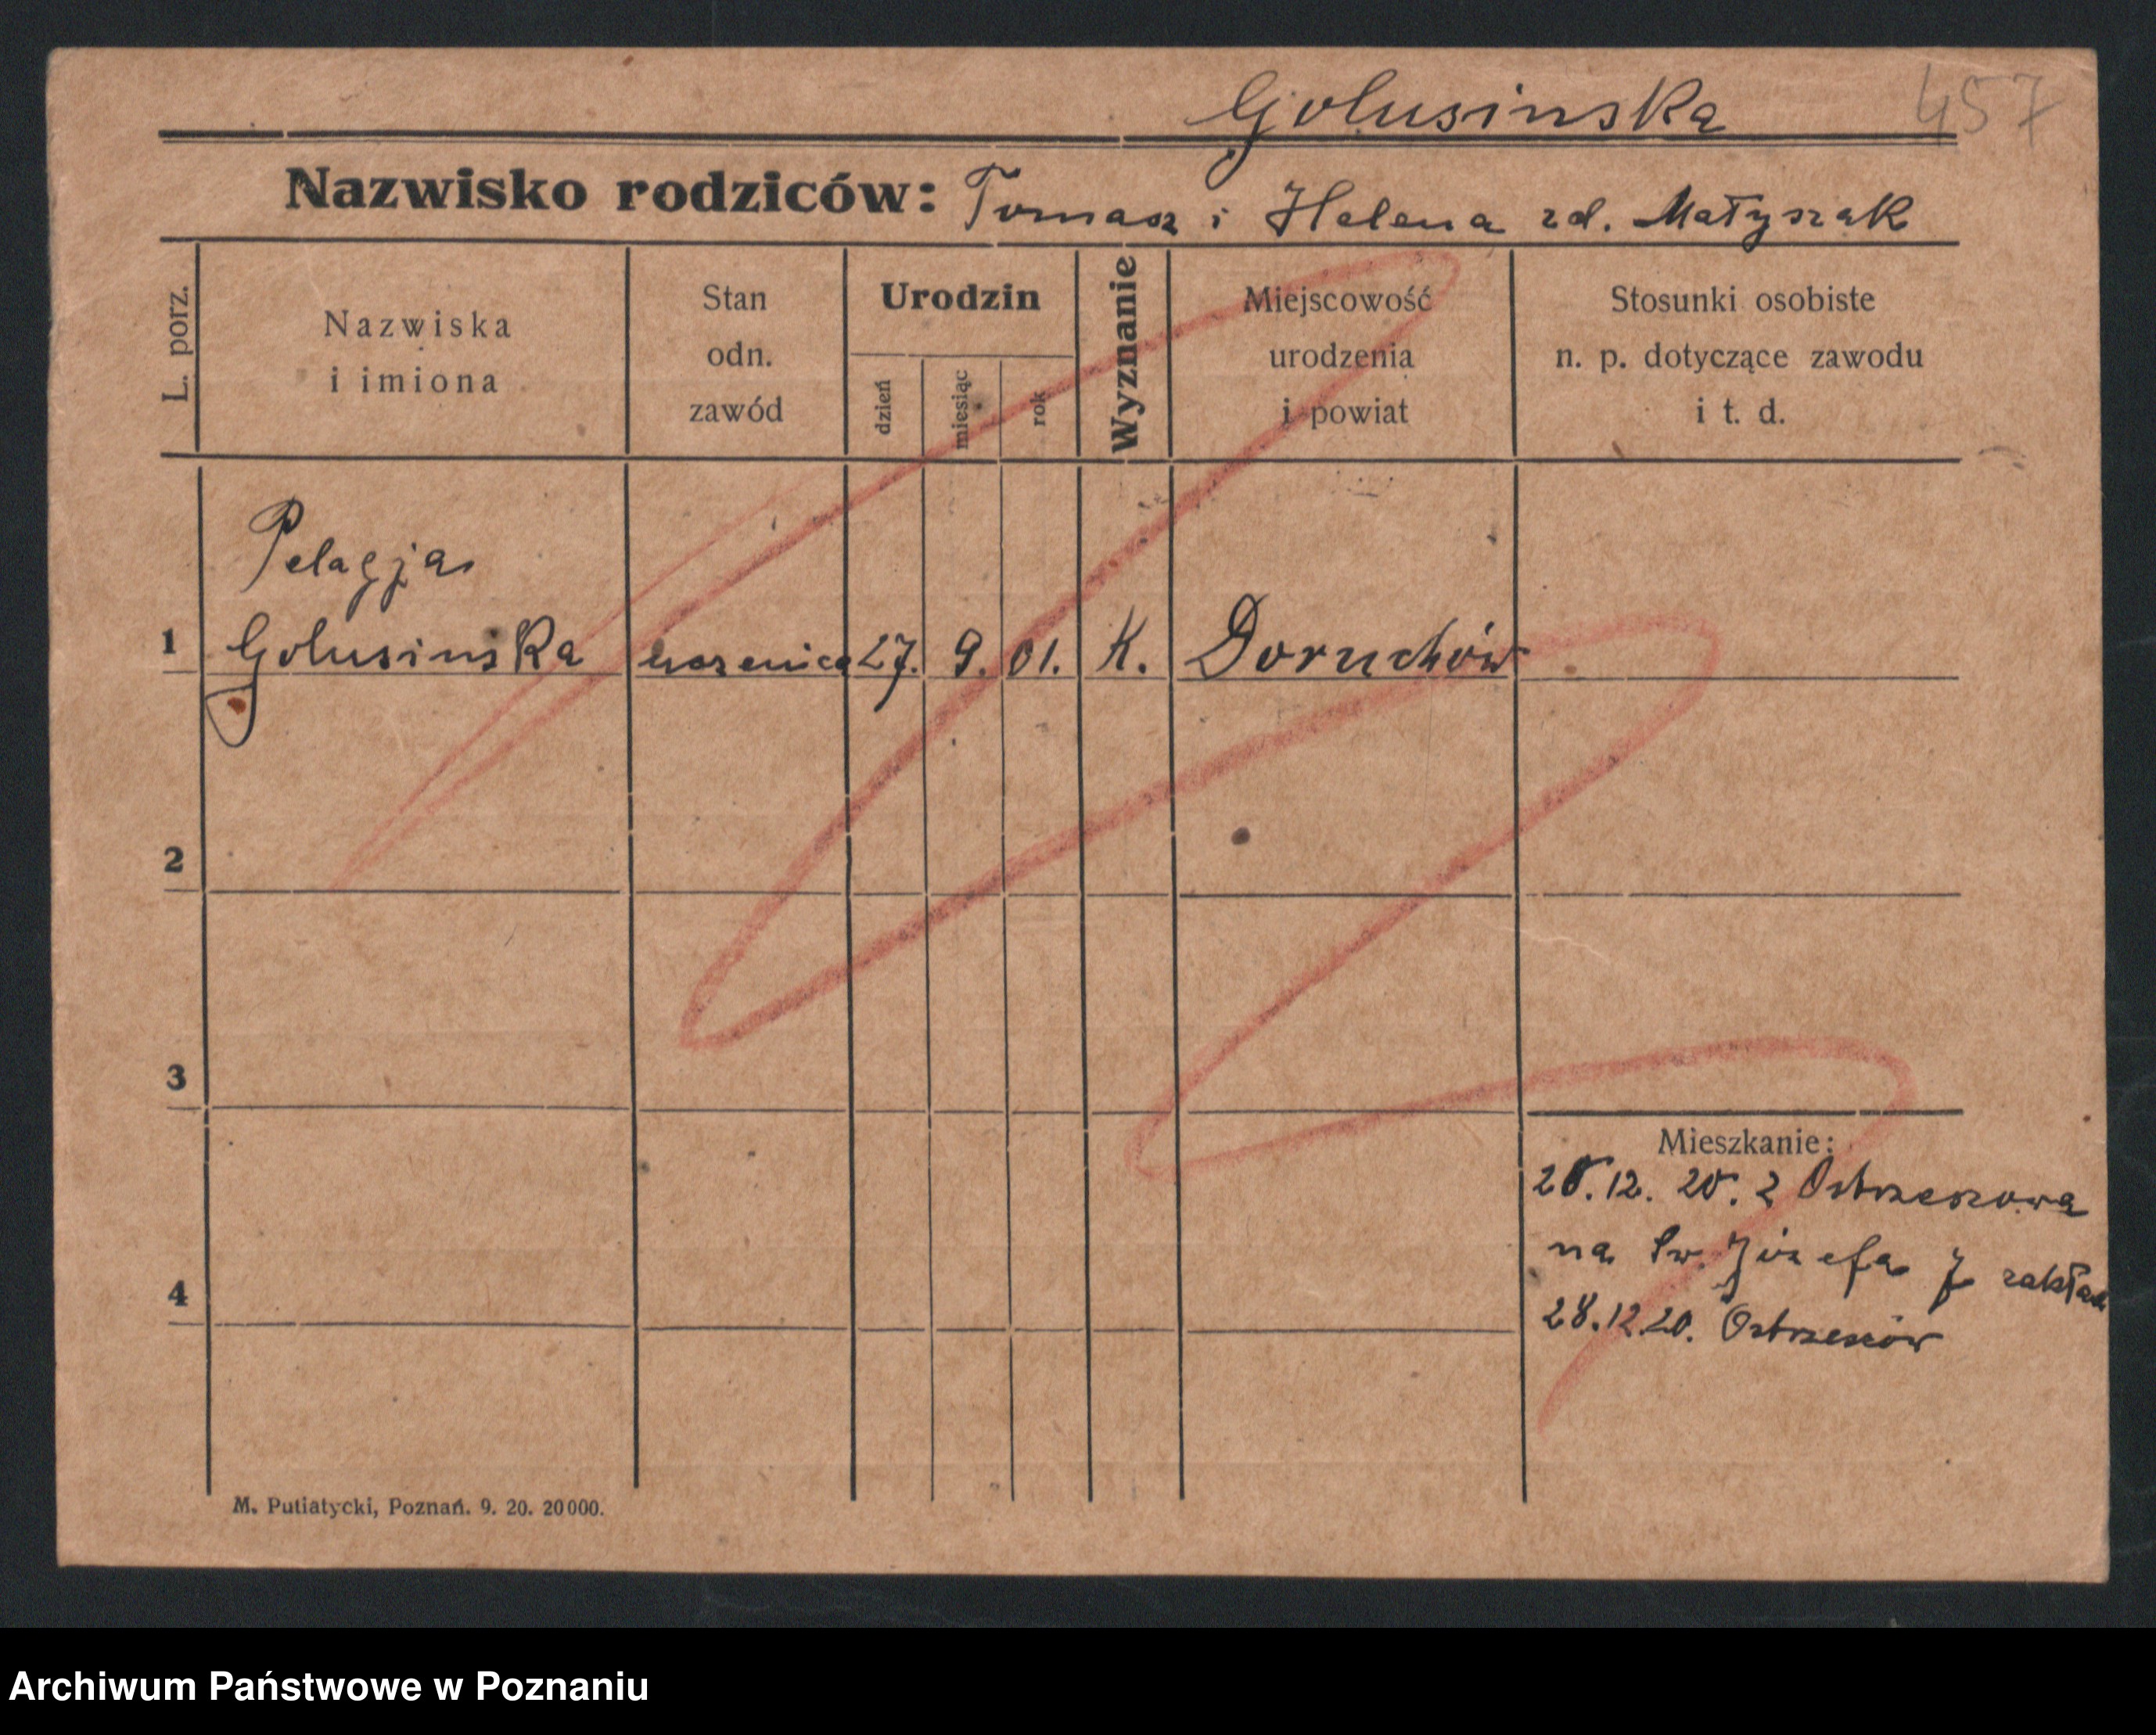 Golusinska 457
Nazwisko rodziców: Tomasz i Helena zd. Małyszak
L. porz.
Nazwiska
i imiona
Stan
odn.
zawód
Urodzin
dzień
miesiąc
rok
Wyznanie
Miejscowość
urodzenia
i powiat
Stosunki osobiste
n. p. dotyczące zawodu
i t. d.
Pelagja
1 Golusinska uczenica 27. 9. 01. K. Doruchów
2
3
4
Mieszkanie:
20.12. 20. z Ostrzeszowa
na Św. Józefa 7 zakład
28.12.20. Ostrzeszów
M. Putiatycki, Poznań. 9. 20. 20000.
Archiwum Państwowe w Poznaniu